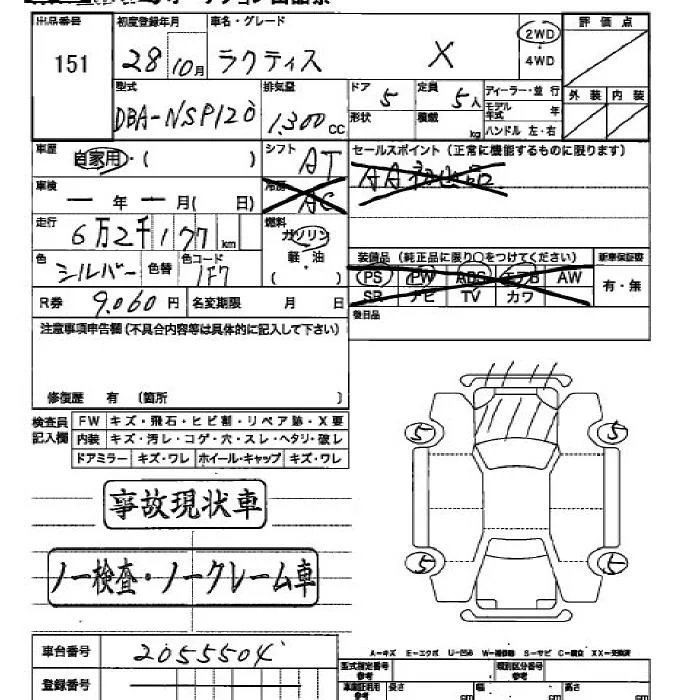 出品番号 初度登録年月 車名・グレード 2WD 評価点
151 28 10月 ラクティス X 4WD
型式 排気量 ドア 5 定員 5人 ディーラー・並行 外装 内装
DBA-NSP120 1.300cc 形状 積載 kg モデル年式 年
ハンドル 左・右
車歴 自家用・( ) シフト AT セールスポイント (正常に機能するものに限ります)
車検 ー年ー月( 日) 冷房 AC
走行 6万2千177km 燃料 ガソリン
色 シルバー 色替 色コード 1F7 軽・油 ( ) 装備品 (純正品に限り○をつけてください) 新車保証書
PS PW ABS エアB AW 有・無
R券 9.060円 名変期限 月 日 SR ナビ TV カワ
注意事項申告欄(不具合内容等は具体的に記入して下さい) 後日品
修復歴 有 〔箇所 〕
検査員記入欄 FW キズ・飛石・ヒビ割・リペア跡・X要
内装 キズ・汚レ・コゲ・穴・スレ・ヘタリ・破レ
ドアミラー キズ・ワレ ホイール・キャップ キズ・ワレ
5 5
事故現状車
ノー検査・ノークレーム車
5 5
車台番号 2055504
A=キズ E=エクボ U=凹み W=補修跡 S=サビ C=腐食 XX=交換済
登録番号 型式指定番号 参考 類別区分番号 参考
長さ cm 幅 cm 高さ cm